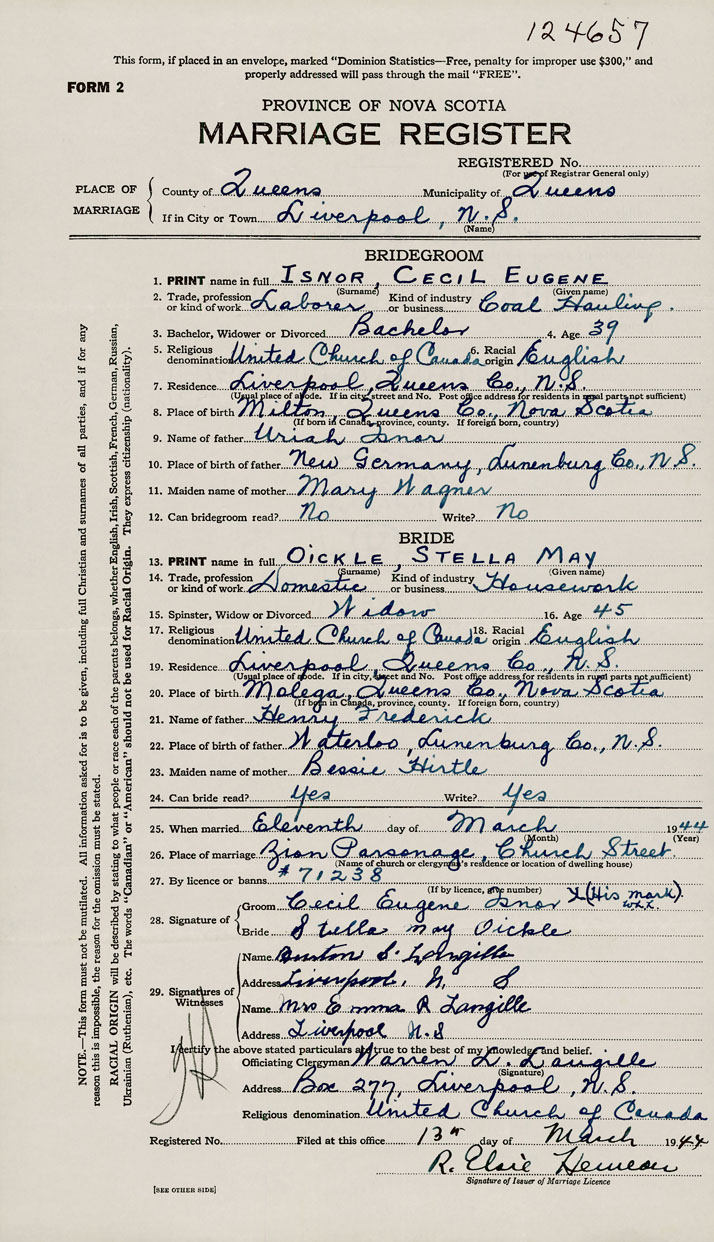 124657
This form, if placed in an envelope, marked "Dominion Statistics—Free, penalty for improper use $300," and
properly addressed will pass through the mail "FREE".
FORM 2
PROVINCE OF NOVA SCOTIA
MARRIAGE REGISTER
REGISTERED No.
(For use of Registrar General only)
PLACE OF MARRIAGE
County of Queens Municipality of Queens
If in City or Town Liverpool, N.S.
(Name)
BRIDEGROOM
1. PRINT name in full ISNOR, CECIL EUGENE
(Surname) (Given name)
2. Trade, profession or kind of work Laborer Kind of industry or business Coal Hauling.
3. Bachelor, Widower or Divorced Bachelor 4. Age 39
5. Religious denomination United Church of Canada 6. Racial origin English
7. Residence Liverpool, Queens Co., N.S.
(Usual place of abode. If in city, street and No. Post office address for residents in rural parts not sufficient)
8. Place of birth Milton, Queens Co., Nova Scotia
(If born in Canada, province, county. If foreign born, country)
9. Name of father Uriah Isnor
10. Place of birth of father New Germany, Lunenburg Co., N.S.
11. Maiden name of mother Mary Wagner
12. Can bridegroom read? No Write? No
BRIDE
13. PRINT name in full OICKLE, STELLA MAY
(Surname) (Given name)
14. Trade, profession or kind of work Domestic Kind of industry or business Housework
15. Spinster, Widow or Divorced Widow 16. Age 45
17. Religious denomination United Church of Canada 18. Racial origin English
19. Residence Liverpool, Queens Co., N.S.
(Usual place of abode. If in city, street and No. Post office address for residents in rural parts not sufficient)
20. Place of birth Molega, Queens Co., Nova Scotia
(If born in Canada, province, county. If foreign born, country)
21. Name of father Henry Frederick
22. Place of birth of father Waterloo, Lunenburg Co., N.S.
23. Maiden name of mother Bessie Hirtle
24. Can bride read? Yes Write? Yes
25. When married Eleventh day of March 1944
(Month) (Year)
26. Place of marriage Zion Parsonage, Church Street.
(Name of church or clergyman's residence or location of dwelling house)
27. By licence or banns #71238
(If by licence, give number)
28. Signature of
Groom Cecil Eugene Isnor X (His mark).
Bride Stella may Oickle
29. Signatures of Witnesses
Name S. Langille
Address Liverpool, N. S
Name Mrs Emma R Langille
Address Liverpool N.S
I certify the above stated particulars are true to the best of my knowledge and belief.
Officiating Clergyman Warren L. Langille
(Signature)
Address Box 277, Liverpool, N.S.
Religious denomination United Church of Canada
Registered No. Filed at this office 13th day of March 1944
R. Elsie Hemeon
Signature of Issuer of Marriage Licence
[SEE OTHER SIDE]
NOTE.—This form must not be mutilated. All information asked for is to be given, including full Christian and surnames of all parties, and if for any
reason this is impossible, the reason for the omission must be stated.
RACIAL ORIGIN will be described by stating to what people or race each of the parents belongs, whether English, Irish, Scottish, French, German, Russian,
Ukrainian (Ruthenian), etc. The words "Canadian" or "American" should not be used for Racial Origin. They express citizenship (nationality).